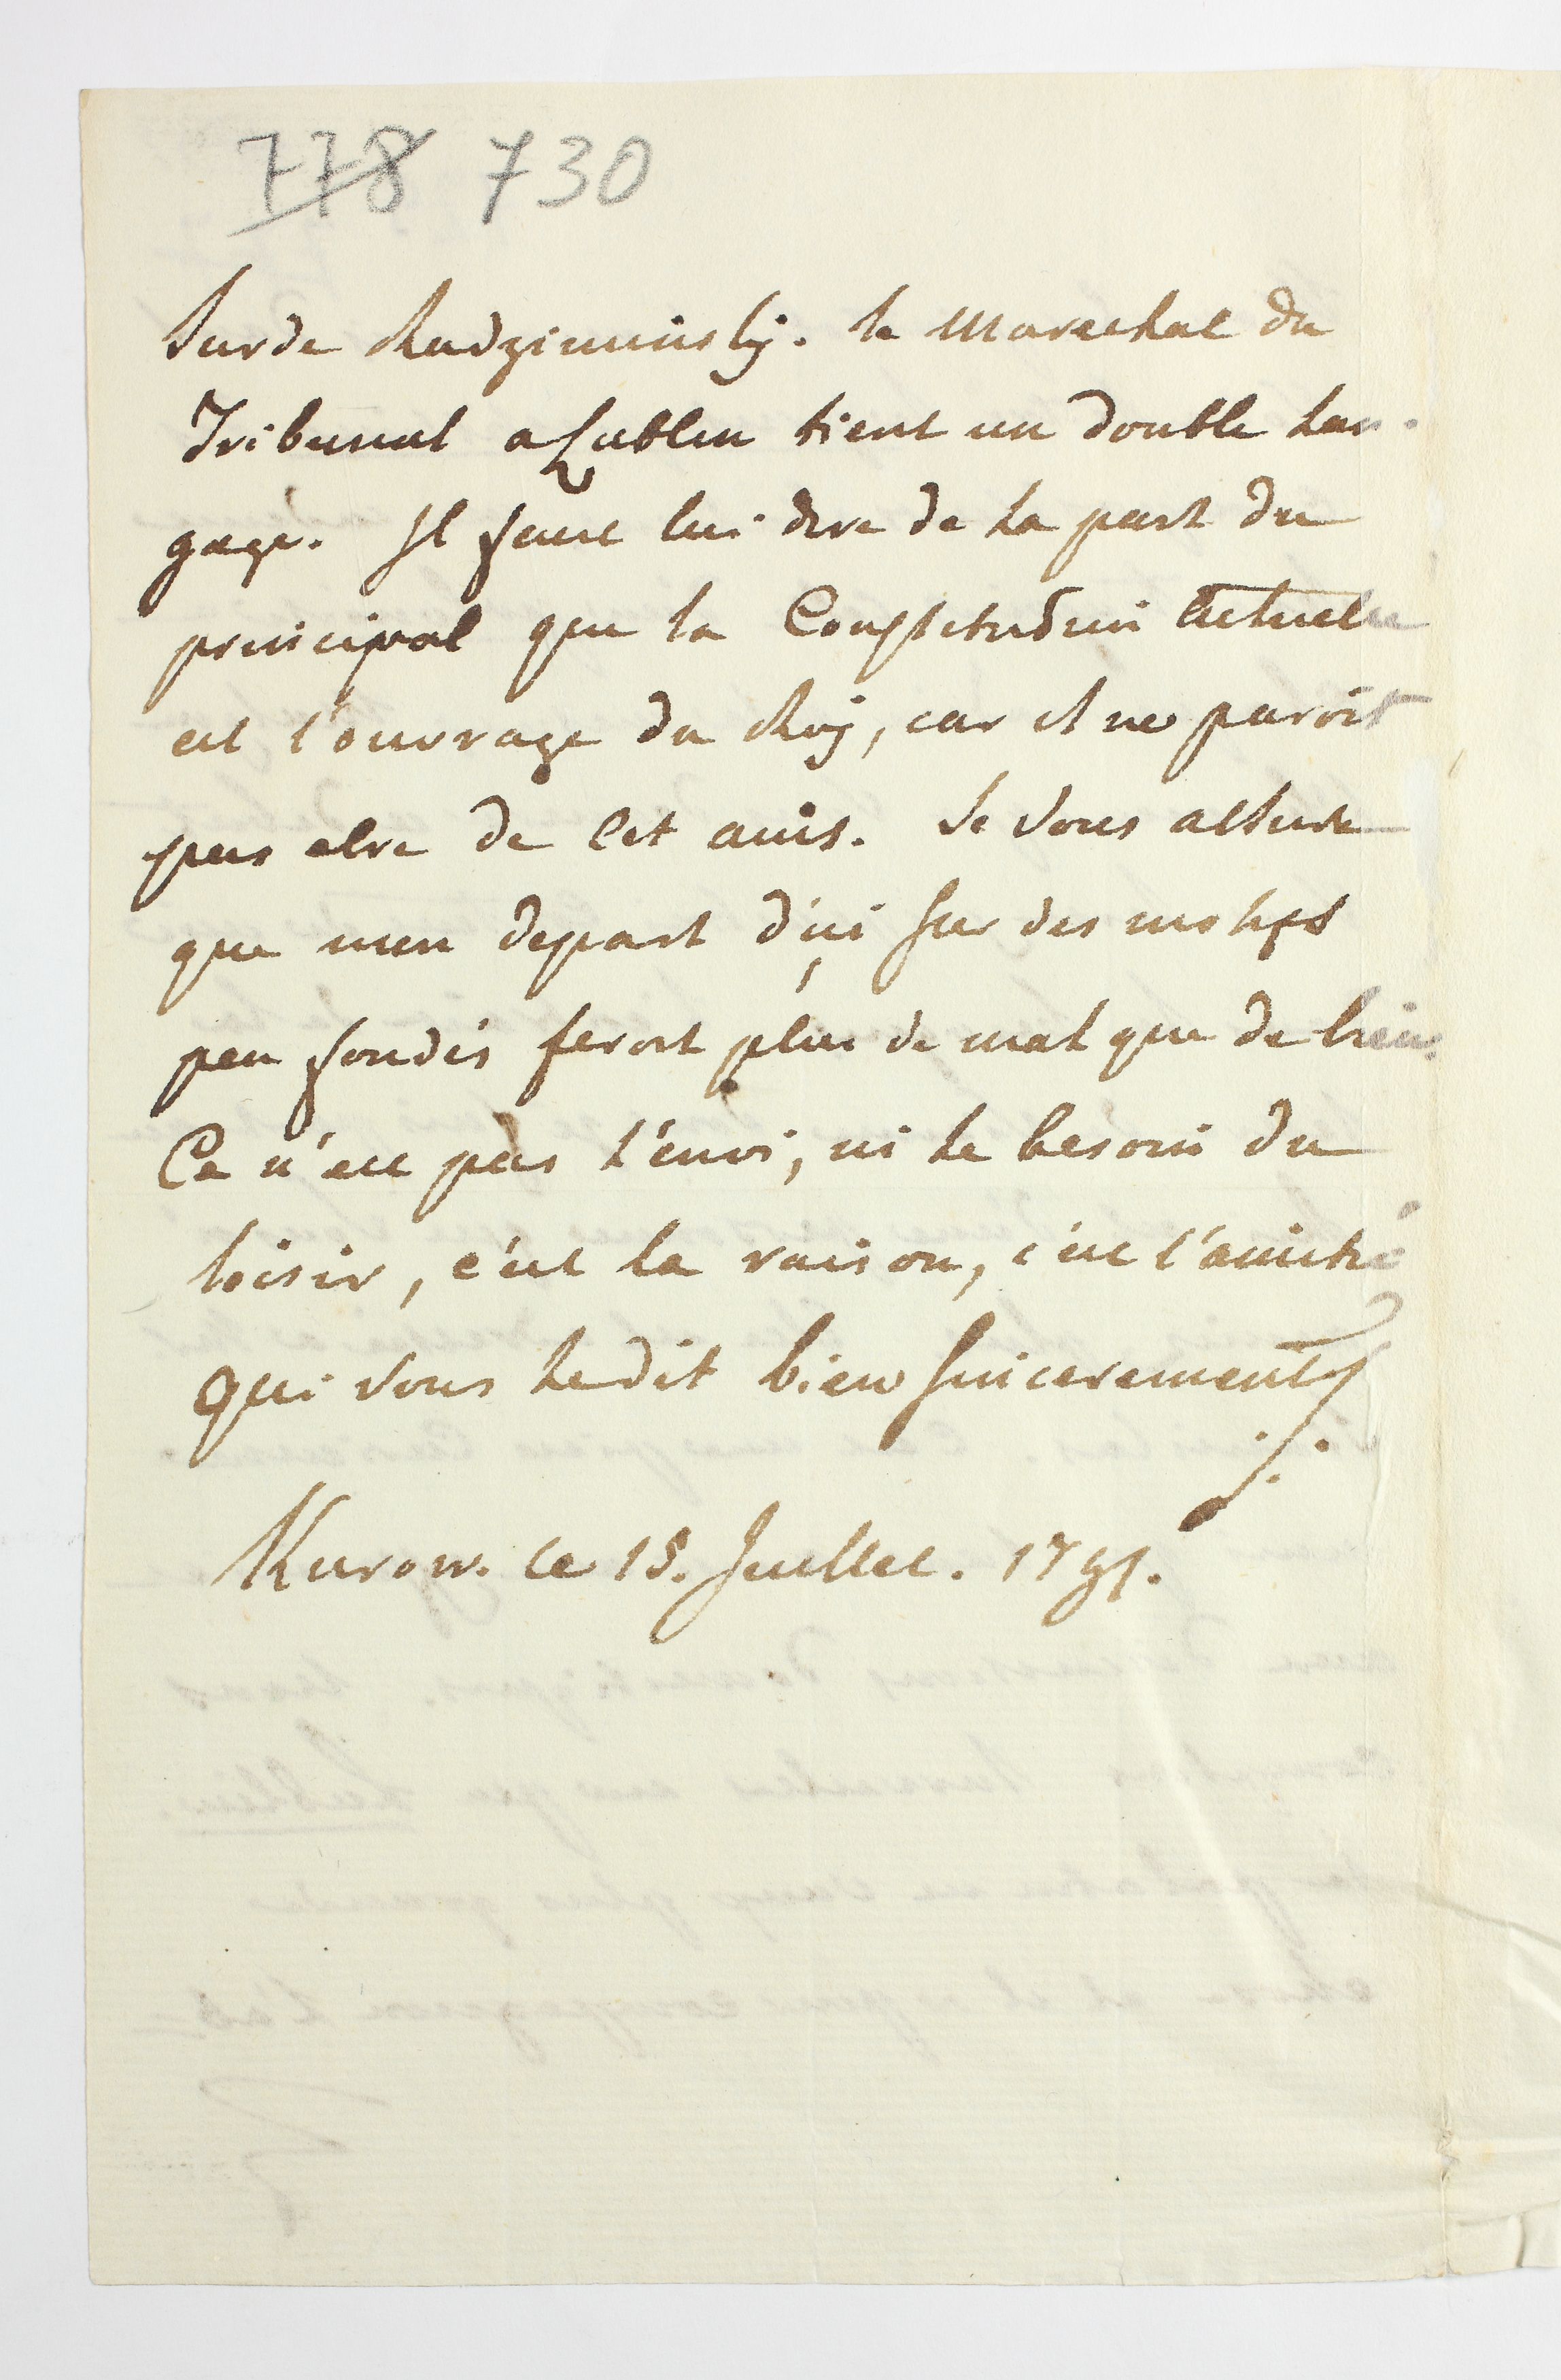 778 730
surde Radziminskj. le Marechal du
Tribunal a Lublin tient un double lan-
gage. Il faut lui dire de la part du
principal que la Constitution actuelle
est l'ouvrage du Roj, car il ne paroit
pas etre de cet avis. Je vous assure
que mon depart d'ici sur des motifs
peu fondés feroit plus de mal que de bien.
Ce n'est pas l'envi, ni le besoin du
loisir, c'est la raison, c'est l'amitié
qui vous le dit bien sincerement
Kurow. le 15. Juillet. 1791.